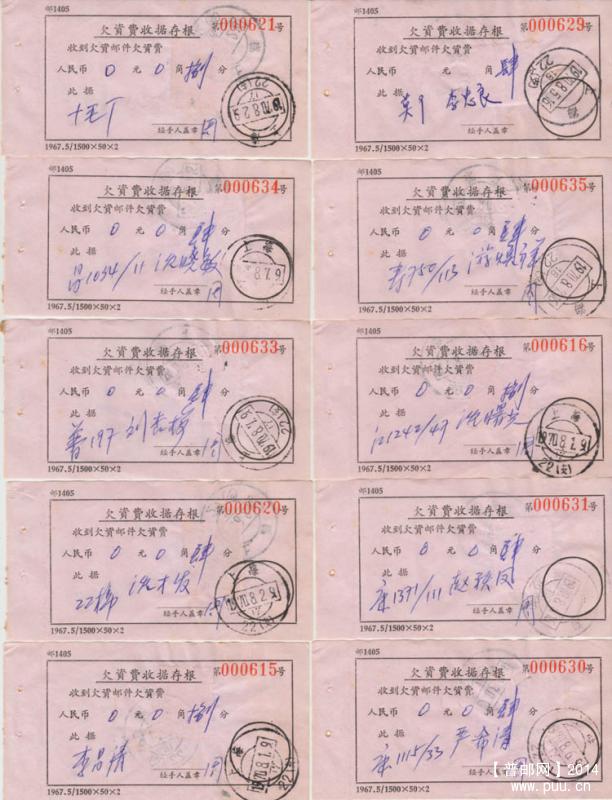 邮1405
欠資費收据存根 第000621号
收到欠資邮件欠資費
人民币 0 元 0 角 捌 分
此据
经手人盖章 周
1967.5/1500×50×2
欠資費收据存根 第000629号
收到欠資邮件欠資費
人民币 0 元 0 角 肆 分
此据
李忠良
经手人盖章
1967.5/1500×50×2
邮1405
欠資費收据存根 第000634号
收到欠資邮件欠資費
人民币 0 元 0 角 肆 分
此据
昌1034/11 沈晓敏
经手人盖章 周
1967.5/1500×50×2
邮1405
欠資費收据存根 第000635号
收到欠資邮件欠資費
人民币 0 元 0 角 肆 分
此据
寿750/113
经手人盖章 周
1967.5/1500×50×2
邮1405
欠資費收据存根 第000633号
收到欠資邮件欠資費
人民币 0 元 0 角 肆 分
此据
普197
经手人盖章 周
1967.5/1500×50×2
邮1405
欠資費收据存根 第000616号
收到欠資邮件欠資費
人民币 0 元 0 角 捌 分
此据
1242/49 沈曙光
经手人盖章 周
1967.5/1500×50×2
邮1405
欠資費收据存根 第000620号
收到欠資邮件欠資費
人民币 0 元 0 角 肆 分
此据
沈才发
经手人盖章 周
1967.5/1500×50×2
邮1405
欠資費收据存根 第000631号
收到欠資邮件欠資費
人民币 0 元 0 角 肆 分
此据
康1371/111
经手人盖章 周
1967.5/1500×50×2
邮1405
欠資費收据存根 第000615号
收到欠資邮件欠資費
人民币 0 元 0 角 捌 分
此据
李昌清
经手人盖章 周
1967.5/1500×50×2
邮1405
欠資費收据存根 第000630号
收到欠資邮件欠資費
人民币 0 元 0 角 肆 分
此据
康1115/33 严希清
经手人盖章 周
1967.5/1500×50×2
【普邮网】2014
www.puu.cn